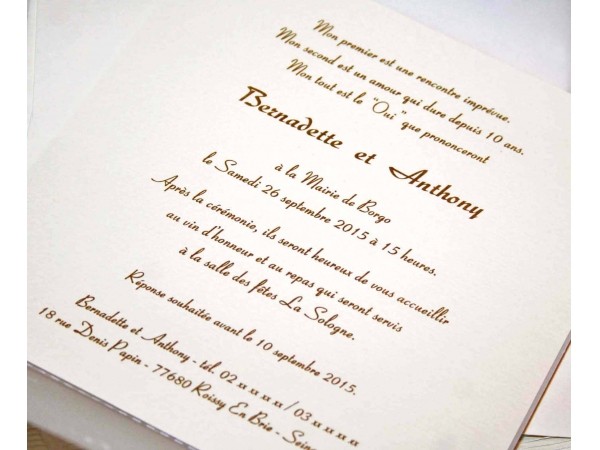 Mon premier est une rencontre imprévue.
Mon second est un amour qui dure depuis 10 ans.
Mon tout est le "Oui" que prononceront
Bernadette et Anthony
à la Mairie de Borgo
le Samedi 26 septembre 2015 à 15 heures.
Après la cérémonie, ils seront heureux de vous accueillir
au vin d'honneur et au repas qui seront servis
à la salle des fêtes La Sologne.
Réponse souhaitée avant le 10 septembre 2015.
Bernadette et Anthony - tél. 02 xx xx xx / 03 xx xx xx
18 rue Denis Papin - 77680 Roissy En Brie - Seine